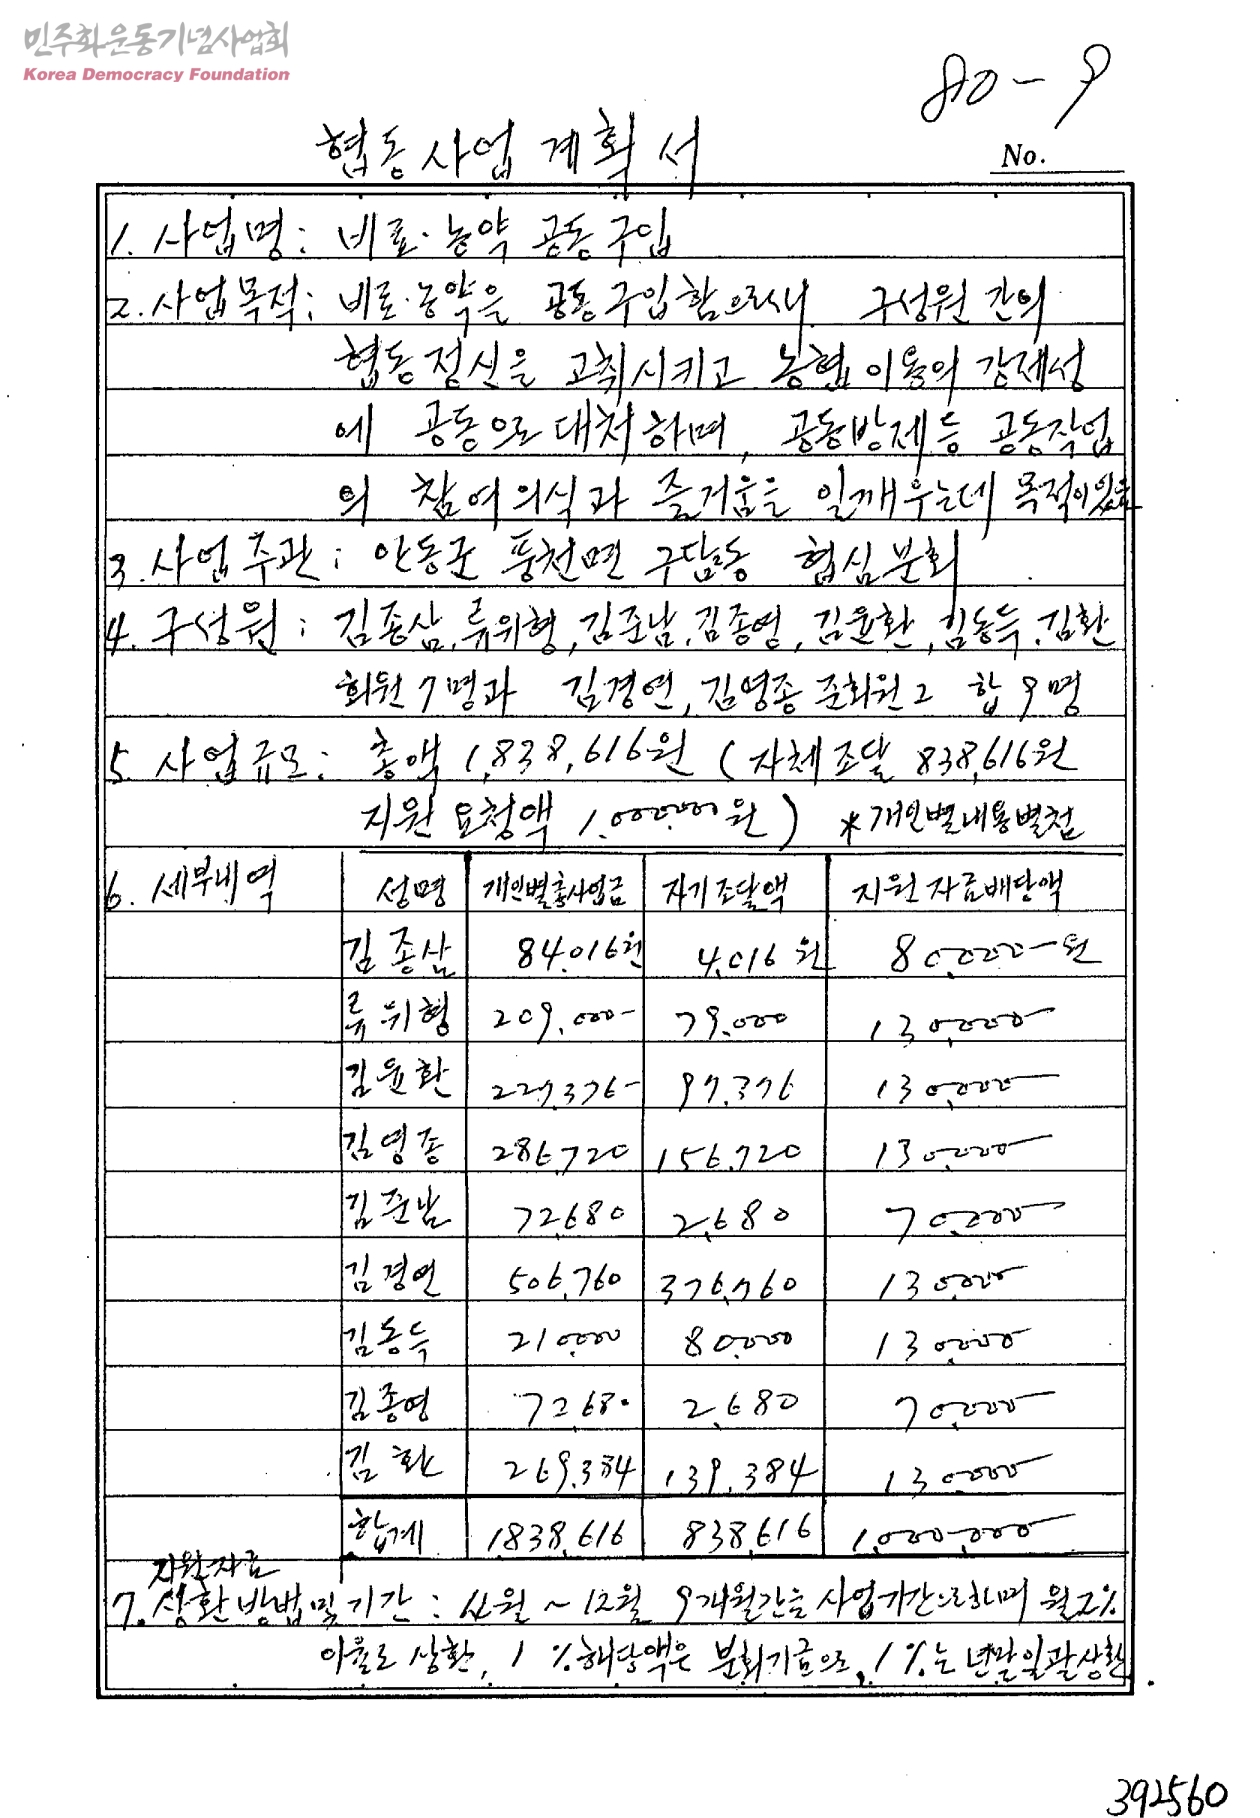 민주화운동기념사업회
Korea Democracy Foundation
80-9
협동사업 계획서
No.
1. 사업명: 비료·농약 공동구입
2. 사업목적: 비료·농약을 공동구입함으로서 구성원 간의
협동정신을 고취시키고 농협이용의 강제성
에 공동으로 대처하며, 공동방제등 공동작업
의 참여의식과 즐거움을 일깨우는데 목적이있음
3. 사업주관: 안동군 풍천면 구담동 협심분회
4. 구성원: 김종삼, 류위형, 김준남, 김종영, 김윤환, 김동득, 김환
회원 7명과 김경연, 김영종 준회원 2 합 9명
5. 사업규모: 총액 1,838,616원 (자체조달 838,616원
지원 요청액 1,000,000원) *개인별내용별첨
6. 세부내역 성명 개인별총사업금 자기조달액 지원자금배당액
김종삼 84,016원 4,016원 80,000-원
류위형 209,000- 79,000 130,000-
김윤환 227,376- 97,376 130,000-
김영종 286,720 156,720 130,000-
김준남 72,680 2,680 70,000-
김경연 506,760 376,760 130,000-
김동득 210,000 80,000 130,000-
김종영 72,680 2,680 70,000-
김환 269,384 139,384 130,000-
합계 1,838,616 838,616 1,000,000-
지원자금
7. 상환방법및기간: 4월~12월 9개월간을 사업기간으로하며 월2%
이율로 상환, 1%해당액은 분회기금으로, 1%는 년말일괄상환.
392560